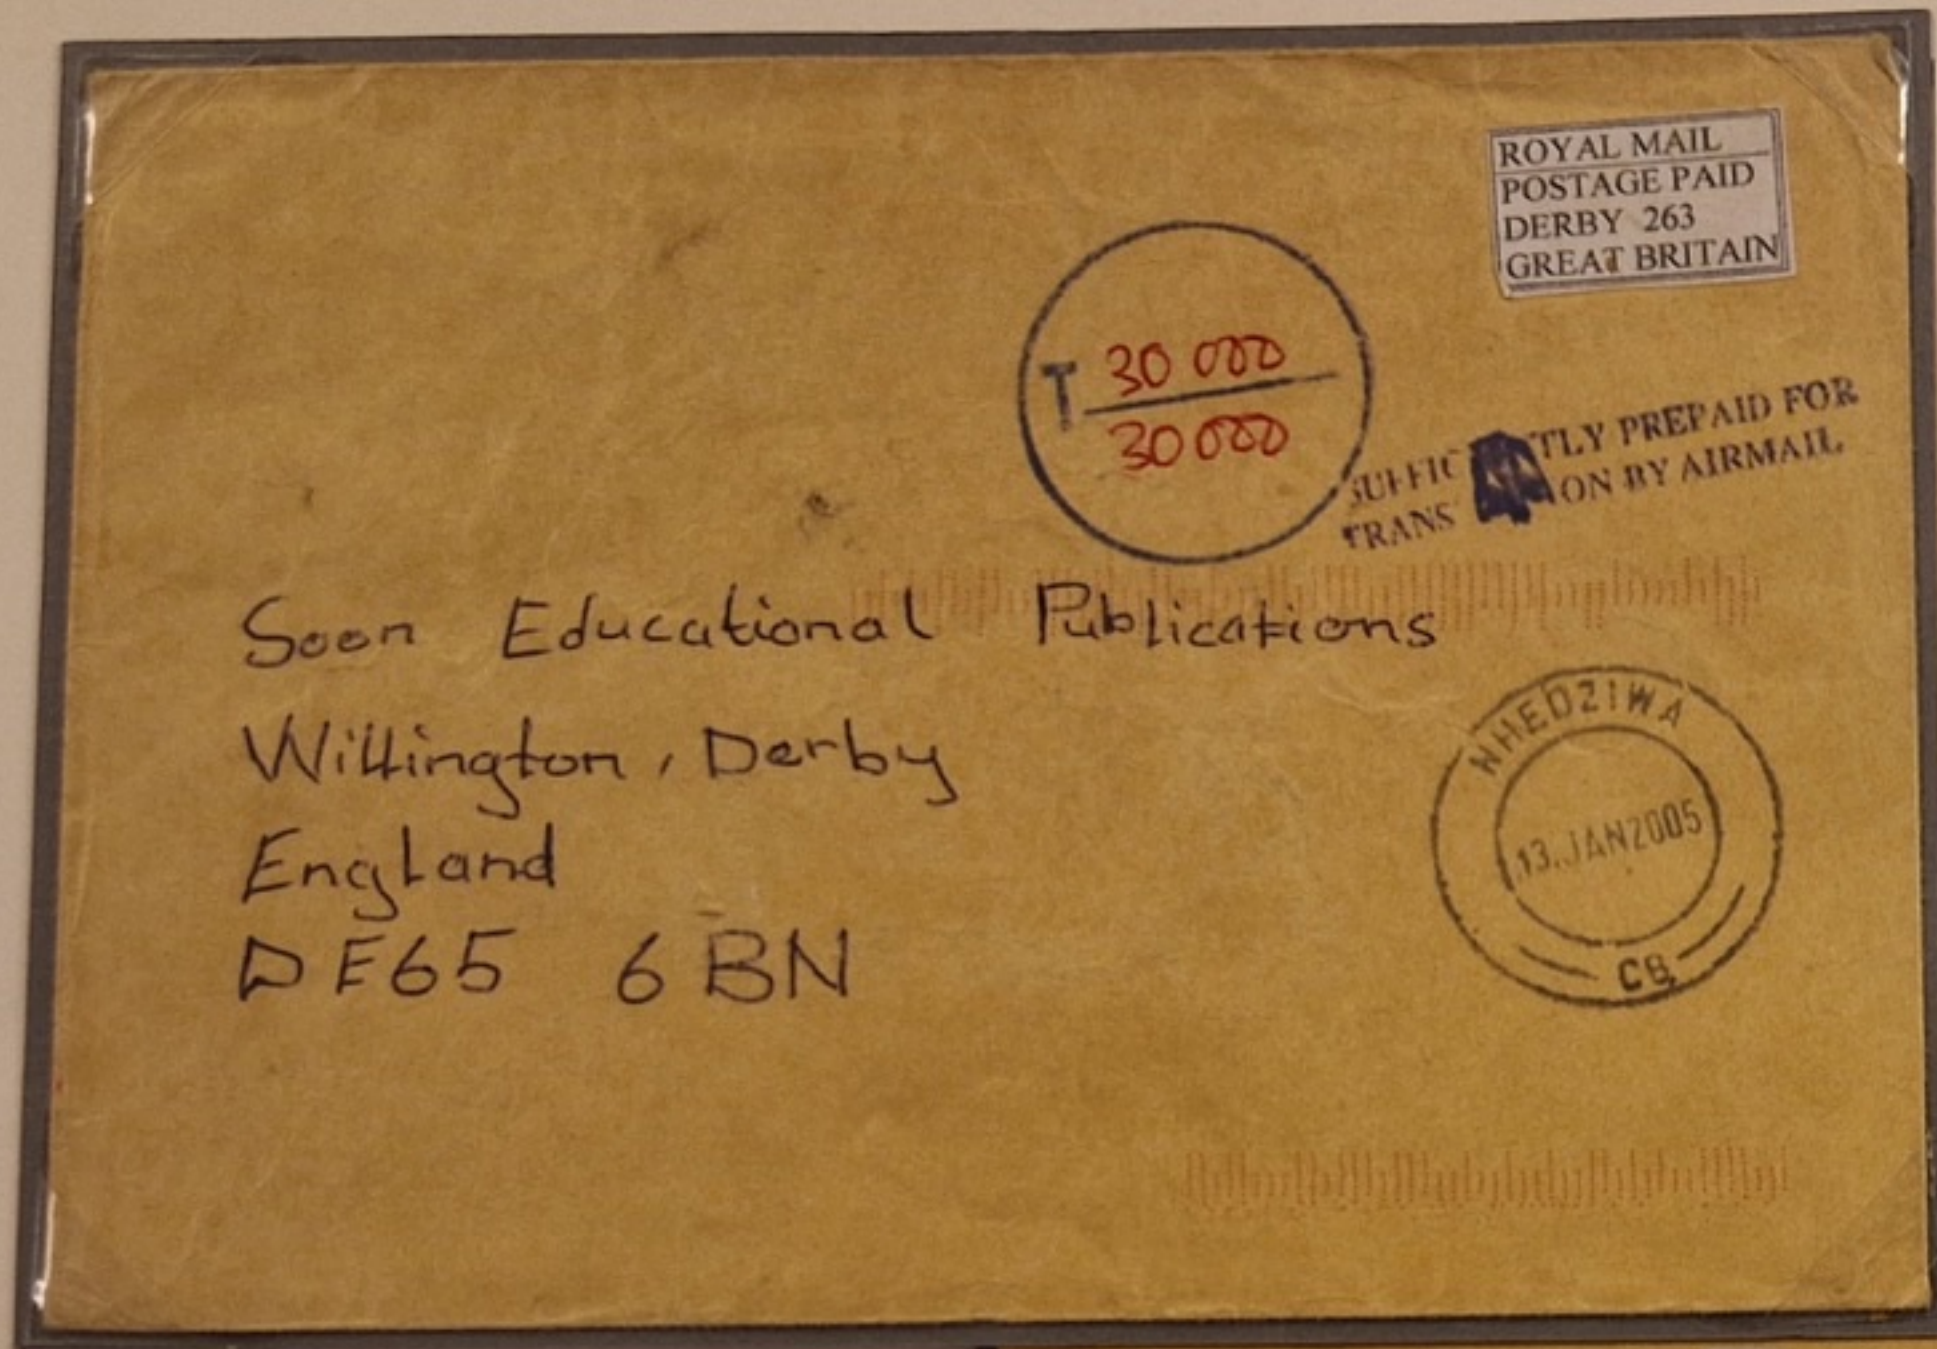 ROYAL MAIL
POSTAGE PAID
DERBY 263
GREAT BRITAIN
T 30 000
30 000
TLY PREPAID FOR
TRANS ON BY AIRMAIL
Soon Educational Publications
Willington, Derby
England
DE65 6BN
NHEDZIWA
13.JAN2005
CB